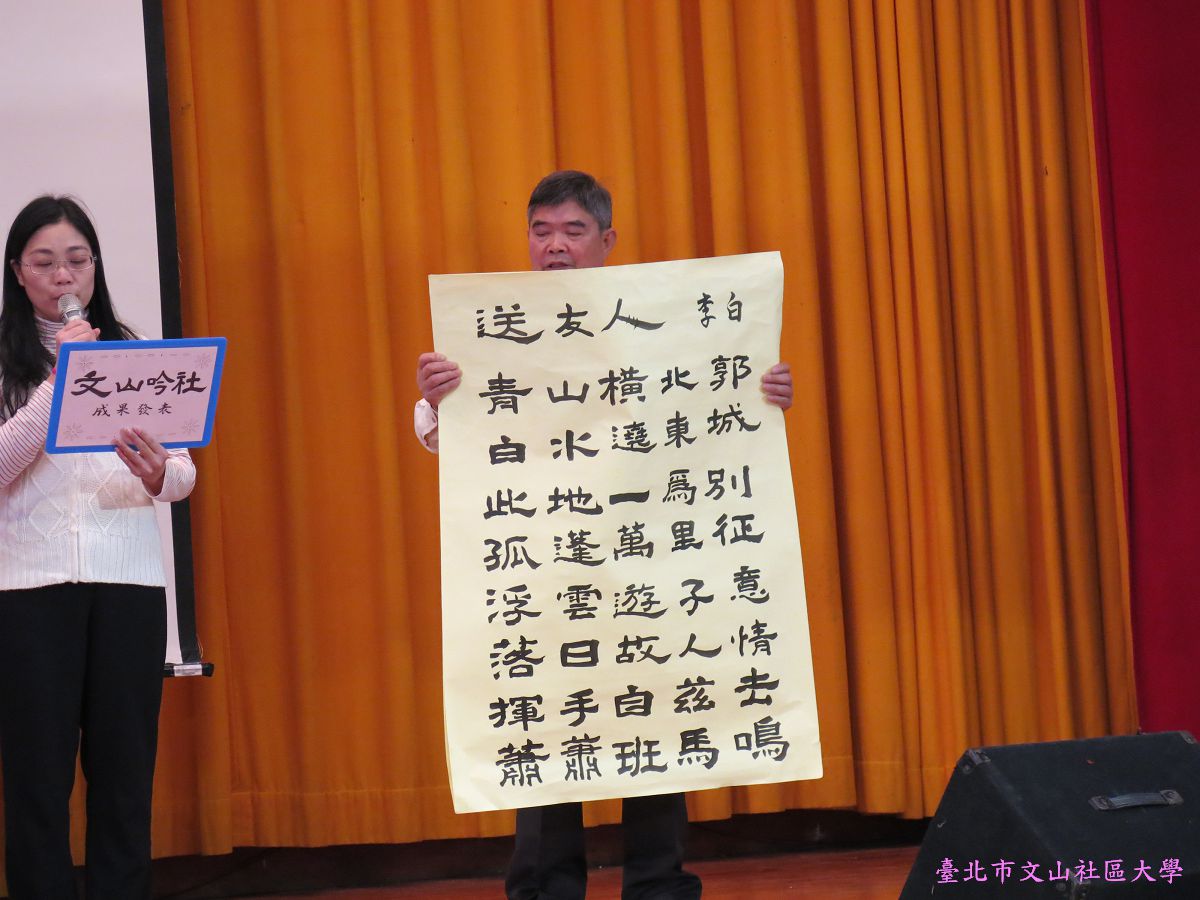 文山吟社
成果發表
送友人 李白
青山橫北郭
白水遶東城
此地一為別
孤蓬萬里征
浮雲遊子意
落日故人情
揮手自茲去
蕭蕭班馬鳴
臺北市文山社區大學